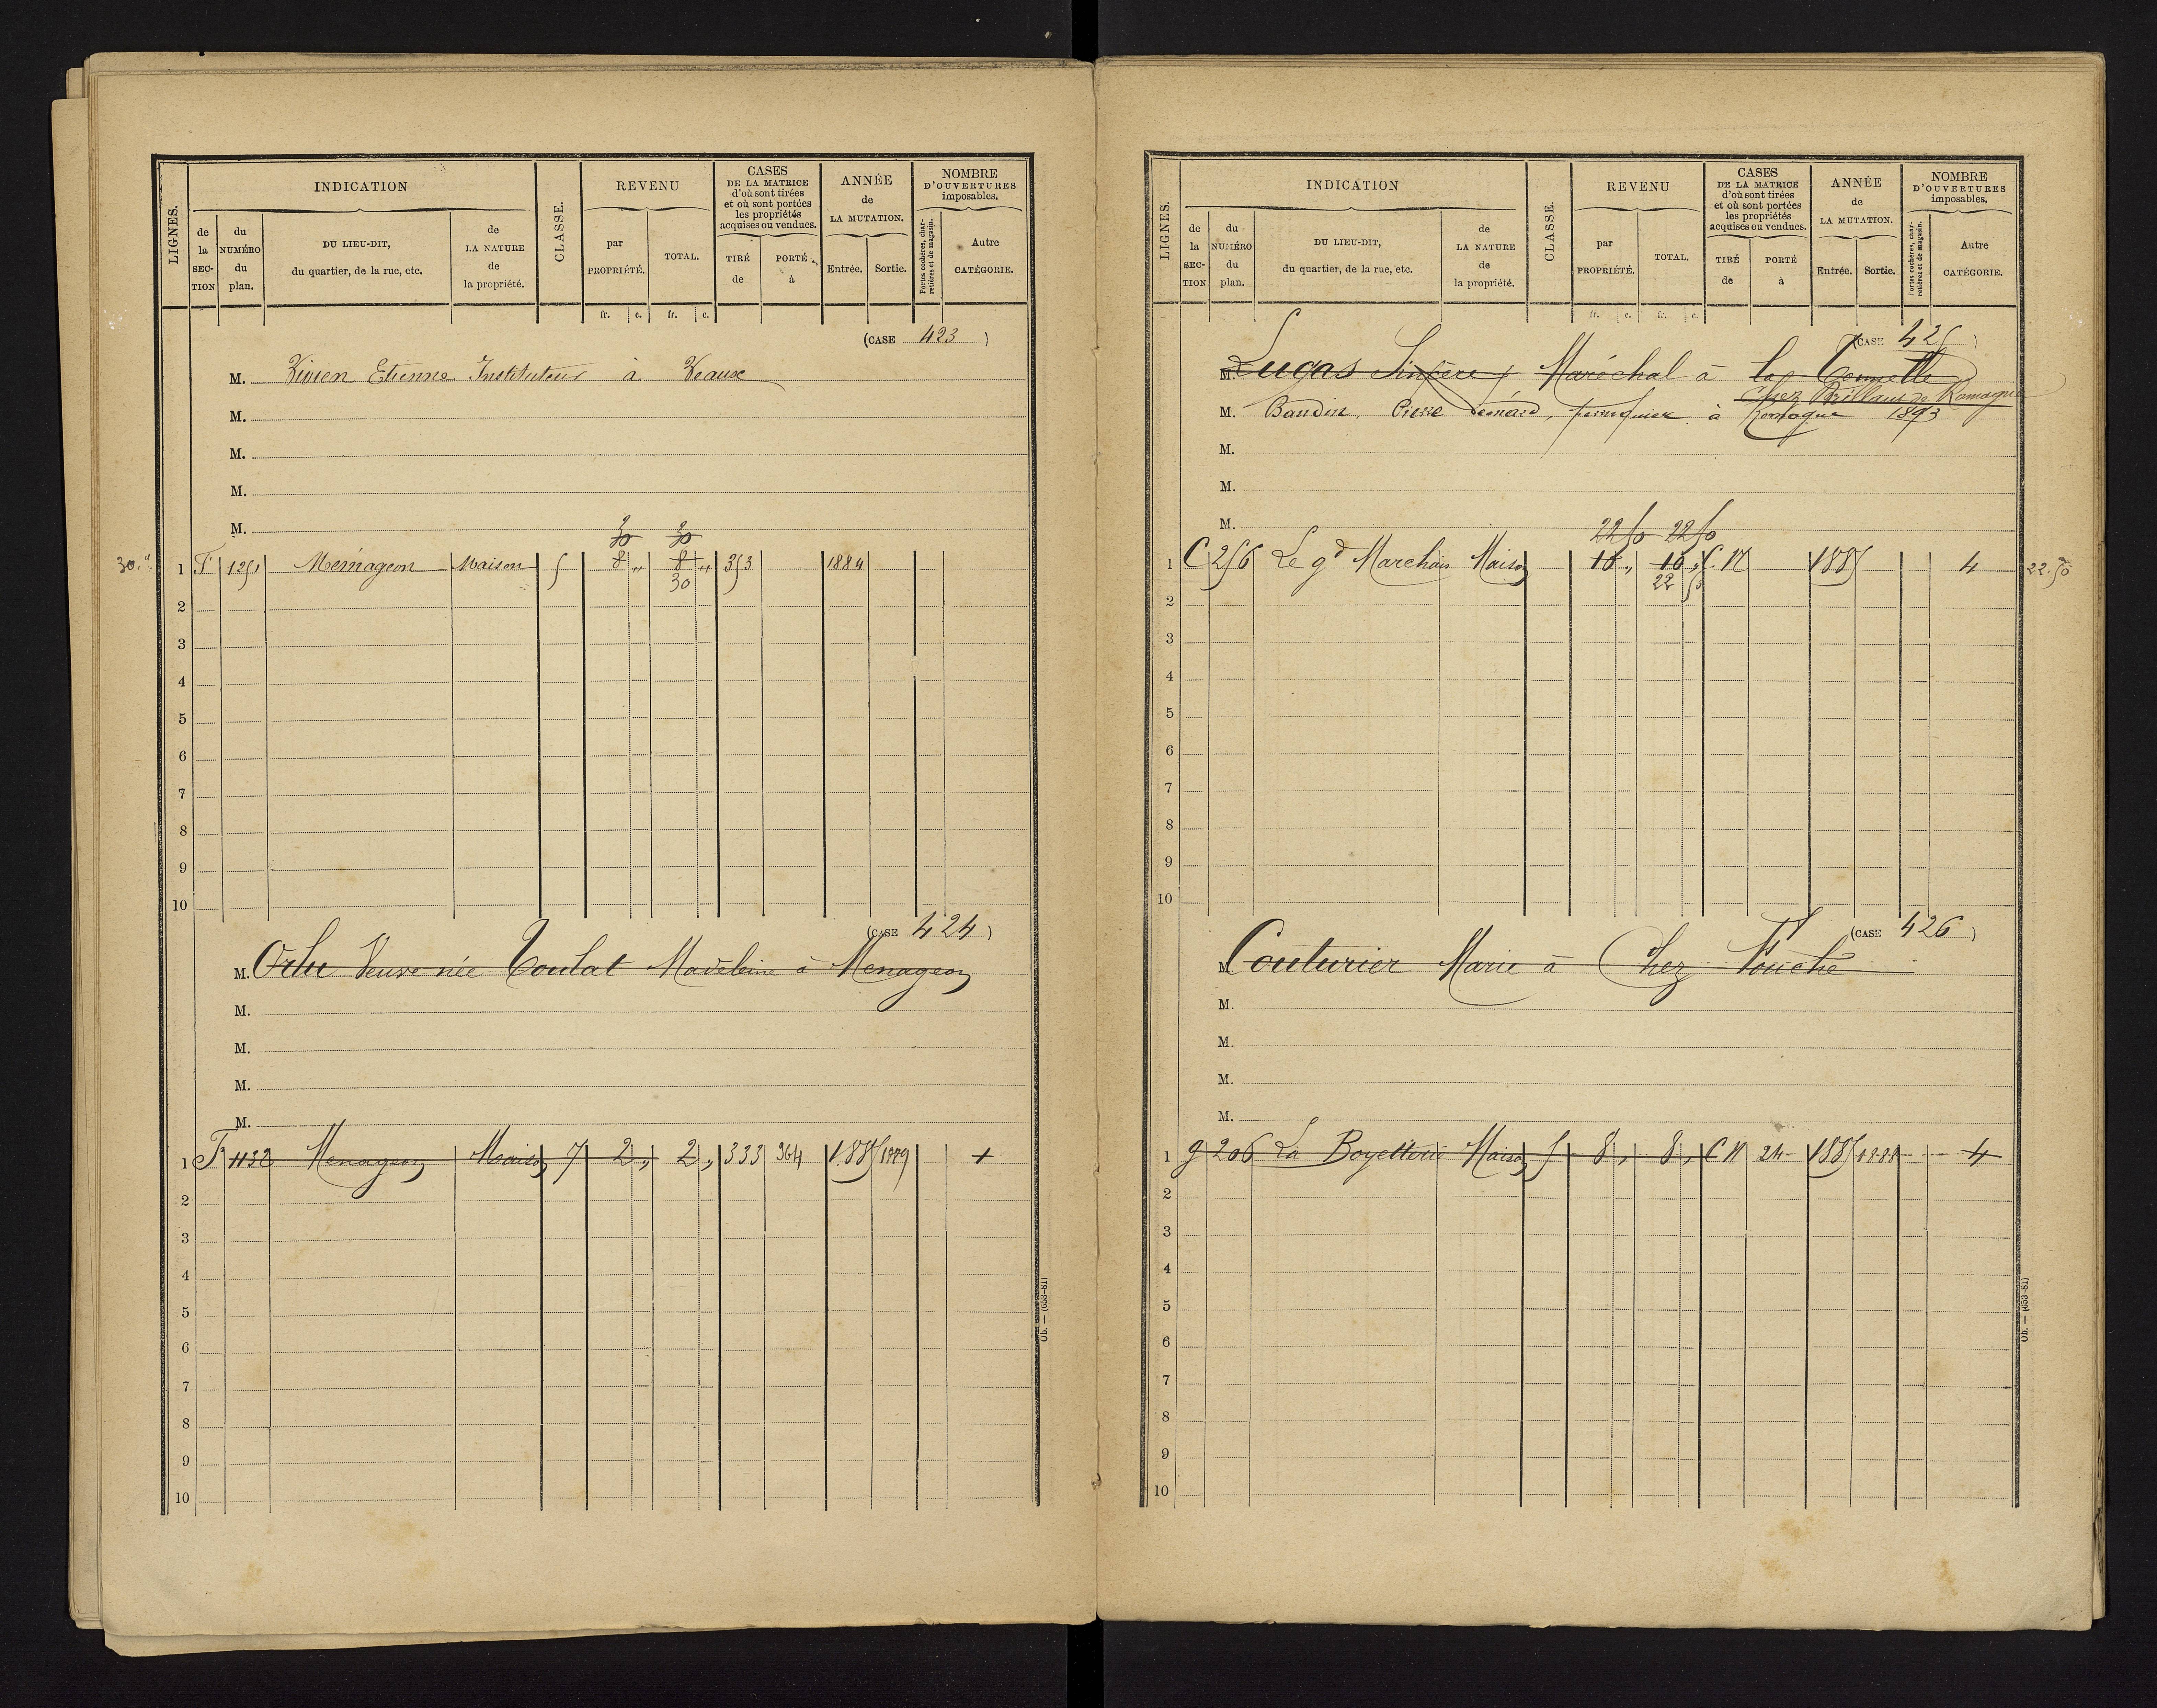 LIGNES.
INDICATION
CLASSE.
REVENU
CASES
DE LA MATRICE
d'où sont tirées
et où sont portées
les propriétés
acquises ou vendues.
ANNÉE
de
LA MUTATION.
NOMBRE
D'OUVERTURES
imposables.
de
la
SEC-
TION
du
NUMÉRO
du
plan.
DU LIEU-DIT,
du quartier, de la rue, etc.
de
LA NATURE
de
la propriété.
par
PROPRIÉTÉ.
TOTAL.
TIRÉ
de
PORTÉ
à
Entrée.
Sortie.
Portes cochères, char-
retières et de magasin.
Autre
CATÉGORIE.
fr. c. fr. c.
(CASE 423)
M. Vivien Etienne Instituteur à Veaux
M.
M.
M.
M.
30 30
30 1 F 1251 Ménageon Maison 5 8 „ 8 „ 353 1884
30
2
3
4
5
6
7
8
9
10
(CASE 424)
M. Orlu Veuve née Toulat Madeleine à Menageon
M.
M.
M.
M.
1 F 1132 Menageon Maison 7 2 „ 2 „ 333 964 1885 1889 1
2
3
4
5
6
7
8
9
10
Ob. — (653-81)
LIGNES.
INDICATION
CLASSE.
REVENU
CASES
DE LA MATRICE
d'où sont tirées
et où sont portées
les propriétés
acquises ou vendues.
ANNÉE
de
LA MUTATION.
NOMBRE
D'OUVERTURES
imposables.
de
la
SEC-
TION
du
NUMÉRO
du
plan.
DU LIEU-DIT,
du quartier, de la rue, etc.
de
LA NATURE
de
la propriété.
par
PROPRIÉTÉ.
TOTAL.
TIRÉ
de
PORTÉ
à
Entrée.
Sortie.
Portes cochères, char-
retières et de magasin.
Autre
CATÉGORIE.
fr. c. fr. c.
(CASE 425)
M. Lucas Maréchal à la
Chez Brillant de Romagne
M. Baudin, Pierre Léonard, perruquier à Romagne 1893
M.
M.
M.
22 50 22 50
1 C 256 Le gd Marchais Maison 18 „ 18 „ C.N 1885 4 22.50
22 50
2
3
4
5
6
7
8
9
10
(CASE 426)
M. Couturier Marie à Chez Fouché
M.
M.
M.
M.
1 g 206 La Boyetterie Maison 5 8 „ 8 „ C N 24 1885 1888 4
2
3
4
5
6
7
8
9
10
Ob. — (653-81)